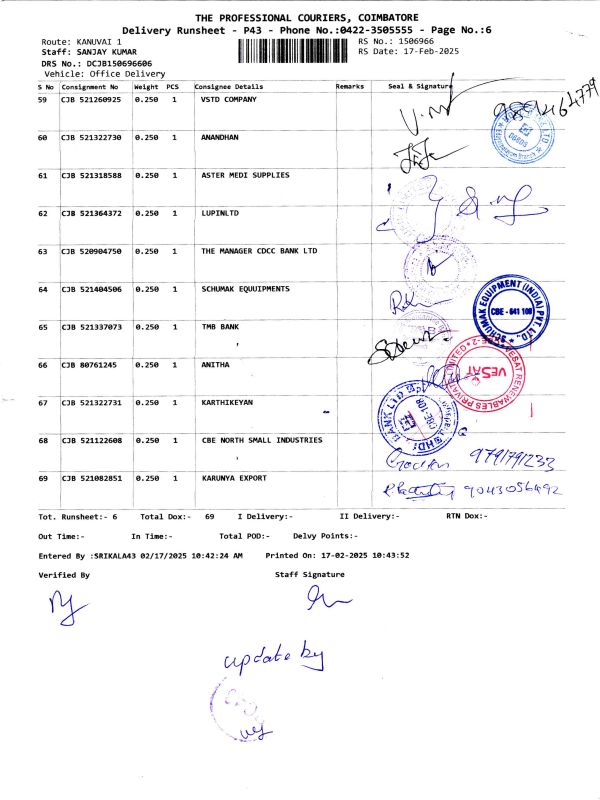 THE PROFESSIONAL COURIERS, COIMBATORE
Delivery Runsheet - P43 - Phone No.:0422-3505555 - Page No.:6
Route: KANUVAI 1 RS No.: 1506966
Staff: SANJAY KUMAR RS Date: 17-Feb-2025
DRS No.: DCJB150696606
Vehicle: Office Delivery
S No Consignment No Weight PCS Consignee Details Remarks Seal & Signature
59 CJB 521260925 0.250 1 VSTD COMPANY
60 CJB 521322730 0.250 1 ANANDHAN
61 CJB 521318588 0.250 1 ASTER MEDI SUPPLIES
62 CJB 521364372 0.250 1 LUPINLTD
63 CJB 520904750 0.250 1 THE MANAGER CDCC BANK LTD
64 CJB 521404506 0.250 1 SCHUMAK EQUUIPMENTS
SCHUMAK EQUIPMENT (INDIA) PVT. LTD.
CBE - 641 108
65 CJB 521337073 0.250 1 TMB BANK
66 CJB 80761245 0.250 1 ANITHA
VESAT
67 CJB 521322731 0.250 1 KARTHIKEYAN
68 CJB 521122608 0.250 1 CBE NORTH SMALL INDUSTRIES
9791791233
69 CJB 521082851 0.250 1 KARUNYA EXPORT
9043056492
Tot. Runsheet:- 6 Total Dox:- 69 I Delivery:- II Delivery:- RTN Dox:-
Out Time:- In Time:- Total POD:- Delvy Points:-
Entered By :SRIKALA43 02/17/2025 10:42:24 AM Printed On: 17-02-2025 10:43:52
Verified By Staff Signature
update by